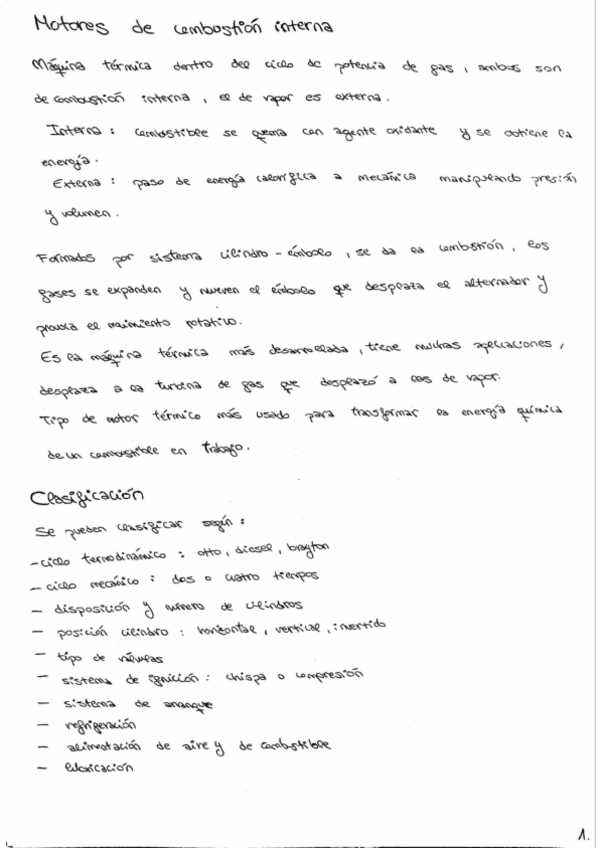 Motores de combustión interna
Máquina térmica dentro del ciclo de potencia de gas, ambos son
de combustión interna, el de vapor es externa.
Interna: combustible se quema con agente oxidante y se obtiene la
energía.
Externa: paso de energía calorífica a mecánica manipulando presión
y volumen.
Formados por sistema cilindro-émbolo, se da la combustión, los
gases se expanden y mueven el émbolo que desplaza el alternador y
provoca el movimiento rotativo.
Es la máquina térmica más desarrollada, tiene muchas aplicaciones,
desplaza a la turbina de gas que desplazó a las de vapor.
Tipo de motor térmico más usado para transformar la energía química
de un combustible en trabajo.
Clasificación
Se pueden clasificar según:
- ciclo termodinámico: otto, diesel, brayton
- ciclo mecánico: dos o cuatro tiempos
- disposición y número de cilindros
- posición cilindro: horizontal, vertical, invertido
- tipo de válvulas
- sistema de ignición: chispa o compresión
- sistema de arranque
- refrigeración
- alimentación de aire y de combustible
- lubricación
1.